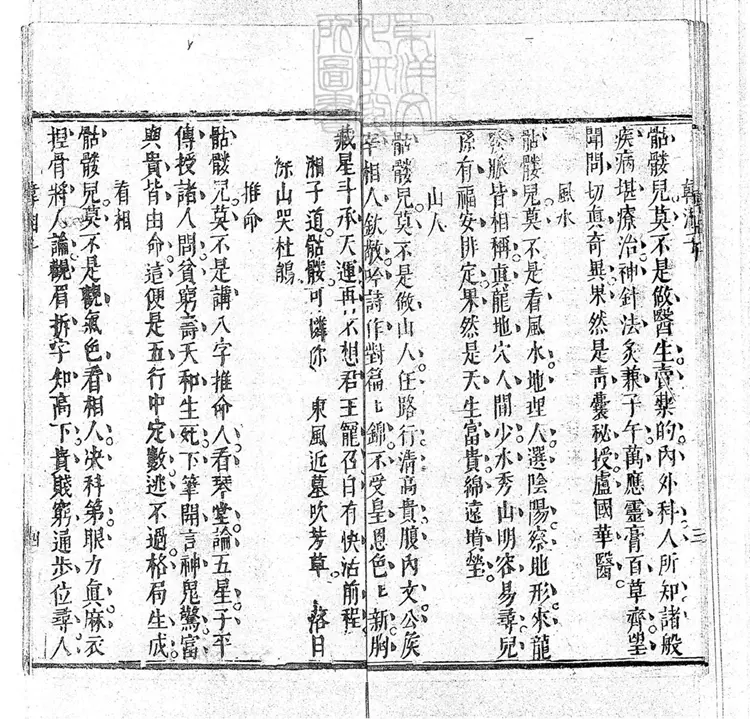 骷髏兒莫不是做醫生賣藥的內外科人所知諸般
疾病甚療治神針法灸兼子午萬應靈膏百草齊望
聞問切眞奇異果然是靑囊秘授盧國華醫
風水
骷髏兒莫不是看風水地理人選陰陽察地形來龍
發脈皆相稱眞龍地穴人間少水秀山明容易尋兒
孫有福安排定果然是天生富貴綿遠墳塋
山人
骷髏兒莫不是做山人任路行清高貴腹內文公侯
宰相人欽敬吟詩作對篇上錦不受皇恩色上新胸
藏星斗承天運再不想君王寵召自有快活前程
湘子道骷髏可憐你 東風近墓吹芳草 落日
深山哭杜鵑
推命
骷髏兒莫不是講八字推命人看琴堂論五星子平
傳授諸人問貧窮壽夭和生死下筆開言神鬼驚富
與貴皆由命這便是五行中定數逃不過格局生成
看相
骷髏兒莫不是觀氣色看相人決科第眼力眞麻衣
捏骨將人論觀眉拆字知高下貴賤窮通步位尋人
三
四